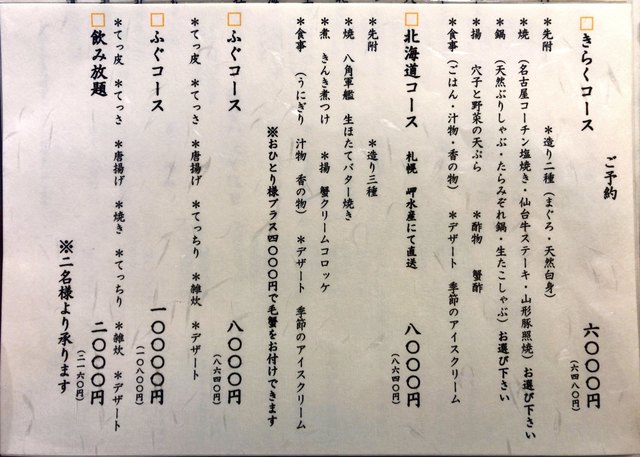 ご予約
□きらくコース 六〇〇〇円
(六四八〇円)
＊先附 ＊造り二種(まぐろ・天然白身)
＊焼 (名古屋コーチン塩焼き・仙台牛ステーキ・山形豚照焼)お選び下さい
＊鍋 (天然ぶりしゃぶ・たらみぞれ鍋・生たこしゃぶ)お選び下さい
＊揚 穴子と野菜の天ぷら ＊酢物 蟹酢
＊食事 (ごはん・汁物・香の物) ＊デザート 季節のアイスクリーム
□北海道コース 札幌 岬水産にて直送 八〇〇〇円
(八六四〇円)
＊先附 ＊造り三種
＊焼 八角軍艦 生ほたてバター焼き
＊煮 きんき煮つけ ＊揚 蟹クリームコロッケ
＊食事 (うにぎり 汁物 香の物) ＊デザート 季節のアイスクリーム
※おひとり様プラス四〇〇〇円で毛蟹をお付けできます
□ふぐコース 八〇〇〇円
(八六四〇円)
＊てっ皮 ＊てっさ ＊唐揚げ ＊てっちり ＊雑炊 ＊デザート
□ふぐコース 一〇〇〇〇円
(一〇八〇〇円)
＊てっ皮 ＊てっさ ＊唐揚げ ＊焼き ＊てっちり ＊雑炊 ＊デザート
□飲み放題 二〇〇〇円
(二一六〇円)
※二名様より承ります